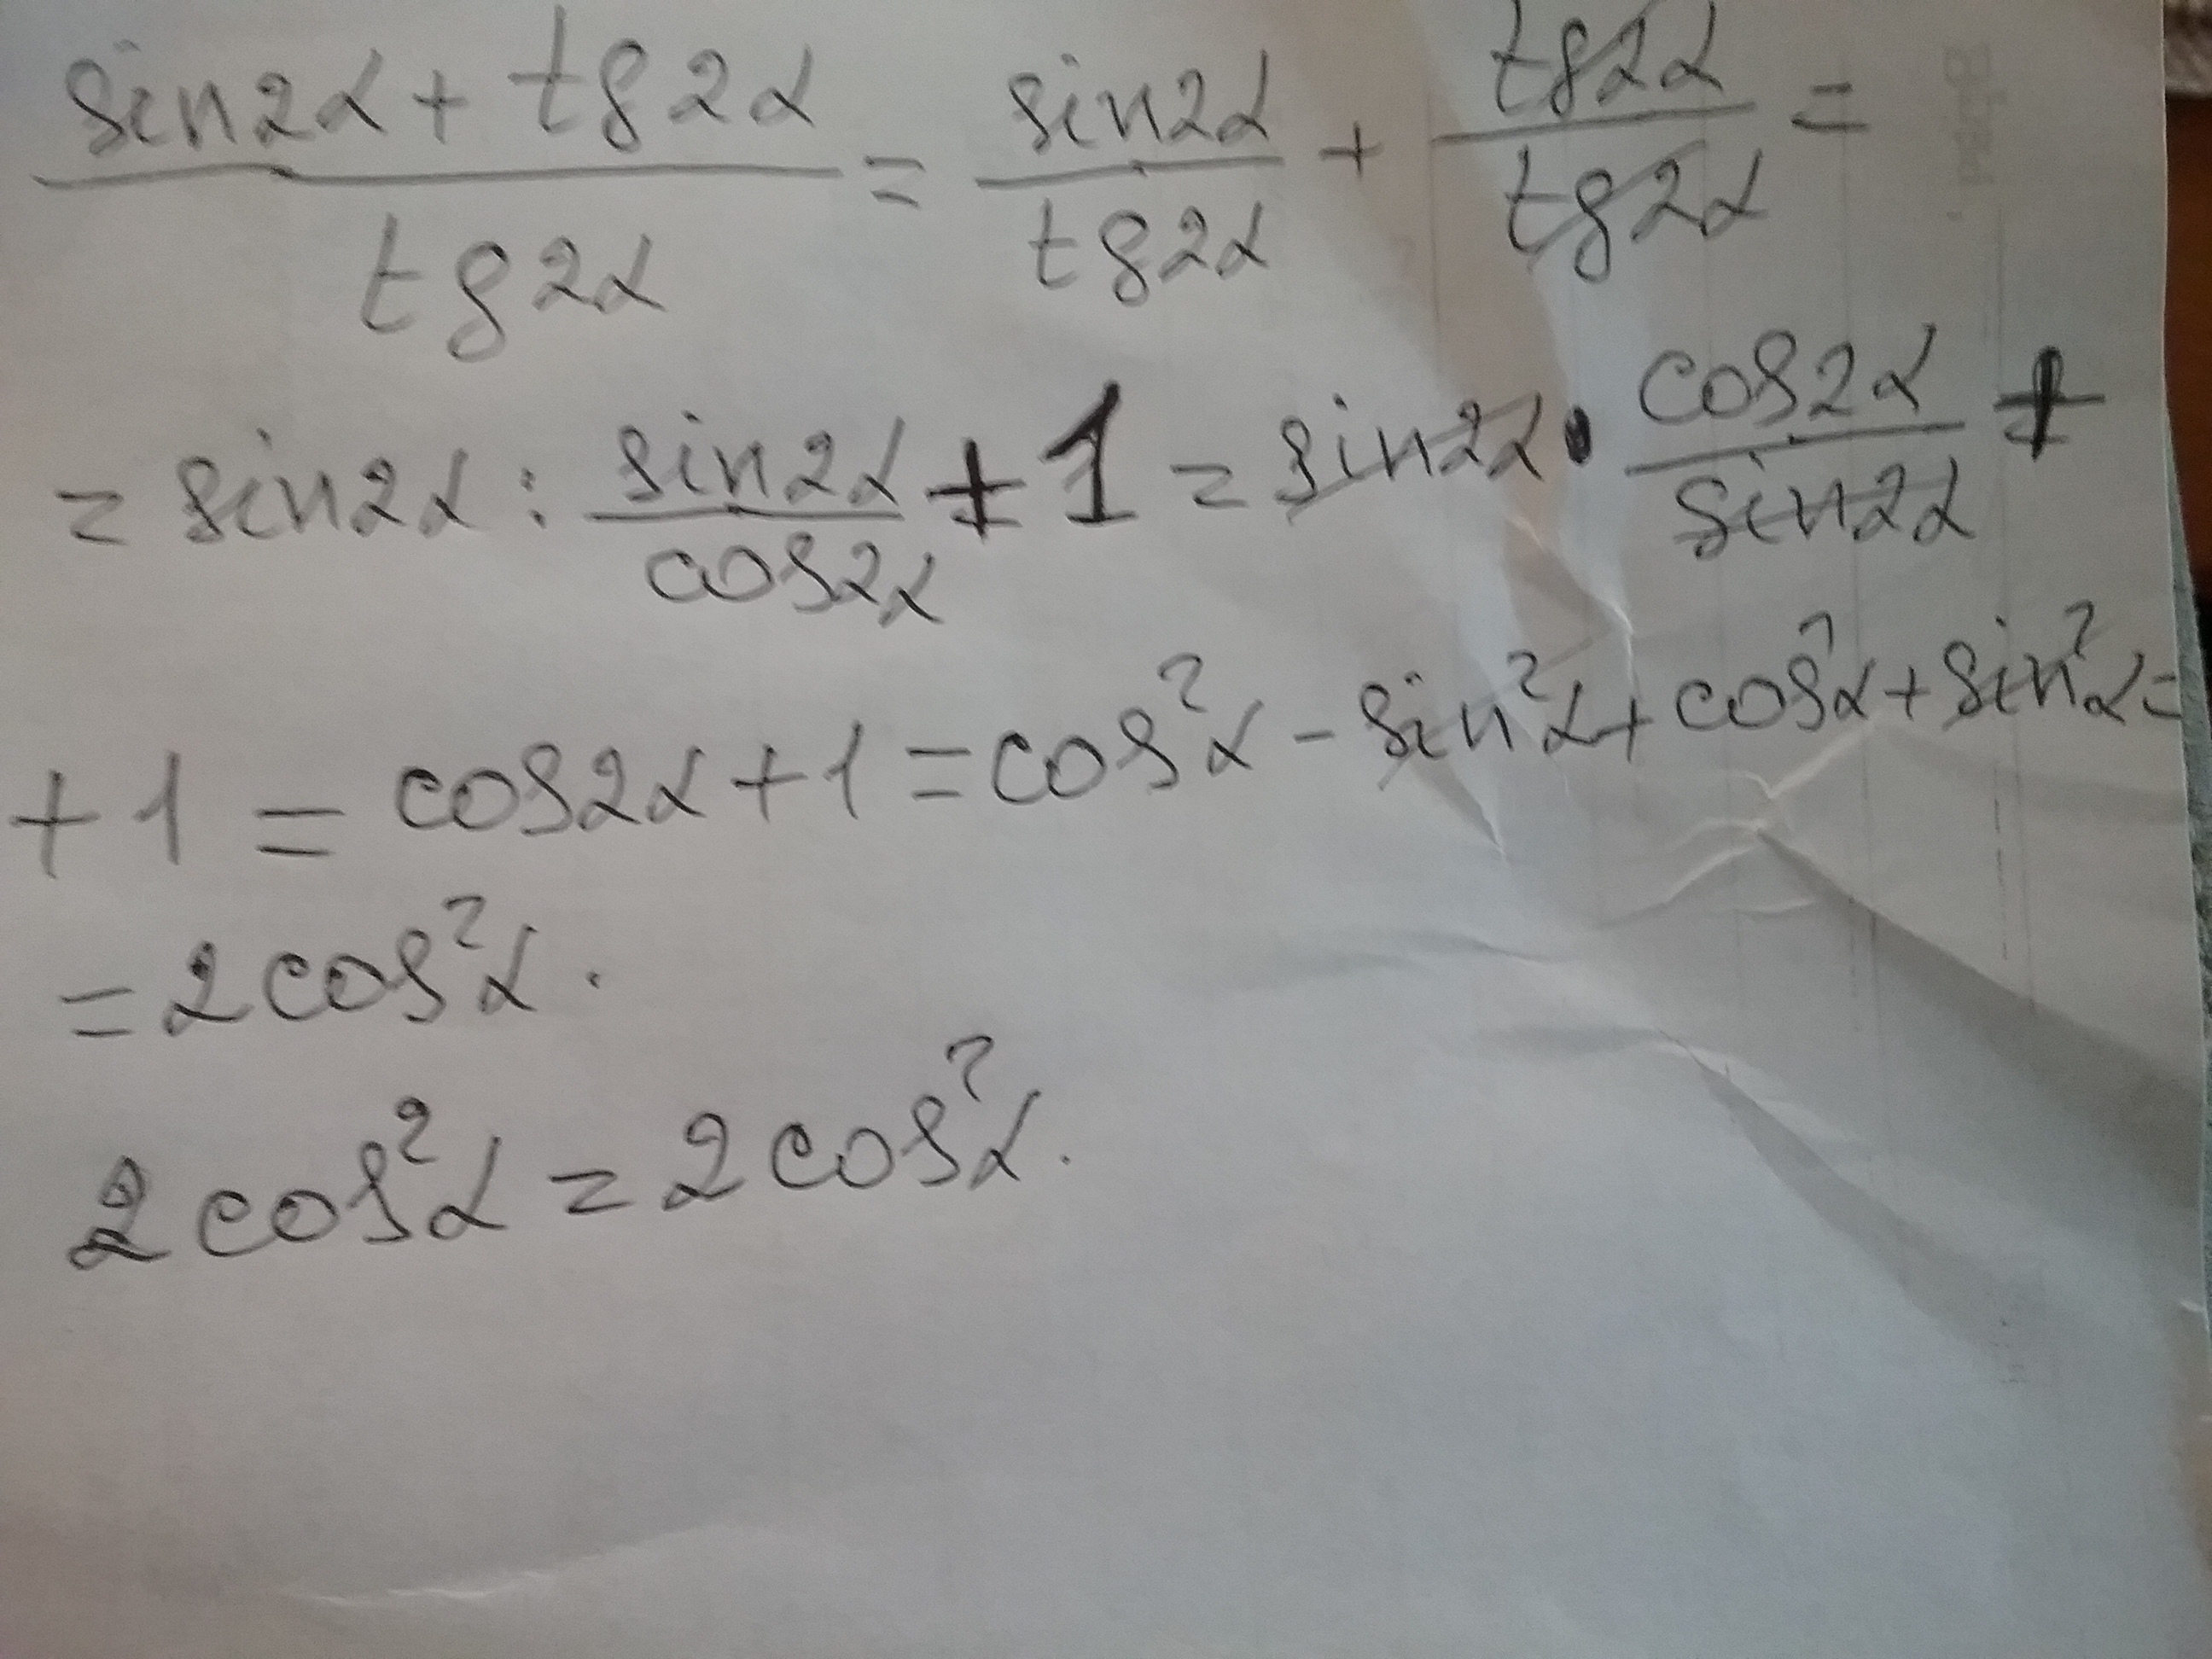 (sin2α + tg2α)/tg2α = sin2α/tg2α + tg2α/tg2α =
= sin2α : sin2α/cos2α + 1 = sin2α · cos2α/sin2α +
+ 1 = cos2α + 1 = cos²α - sin²α + cos²α + sin²α =
= 2cos²α.
2cos²α = 2cos²α.